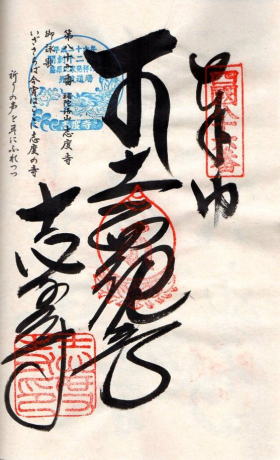 奉納
十一面観音
志度寺
第八十六番 補陀洛山 志度寺
御詠歌
いざさらば今宵はここに志度の寺
祈りの声を耳にふれつつ